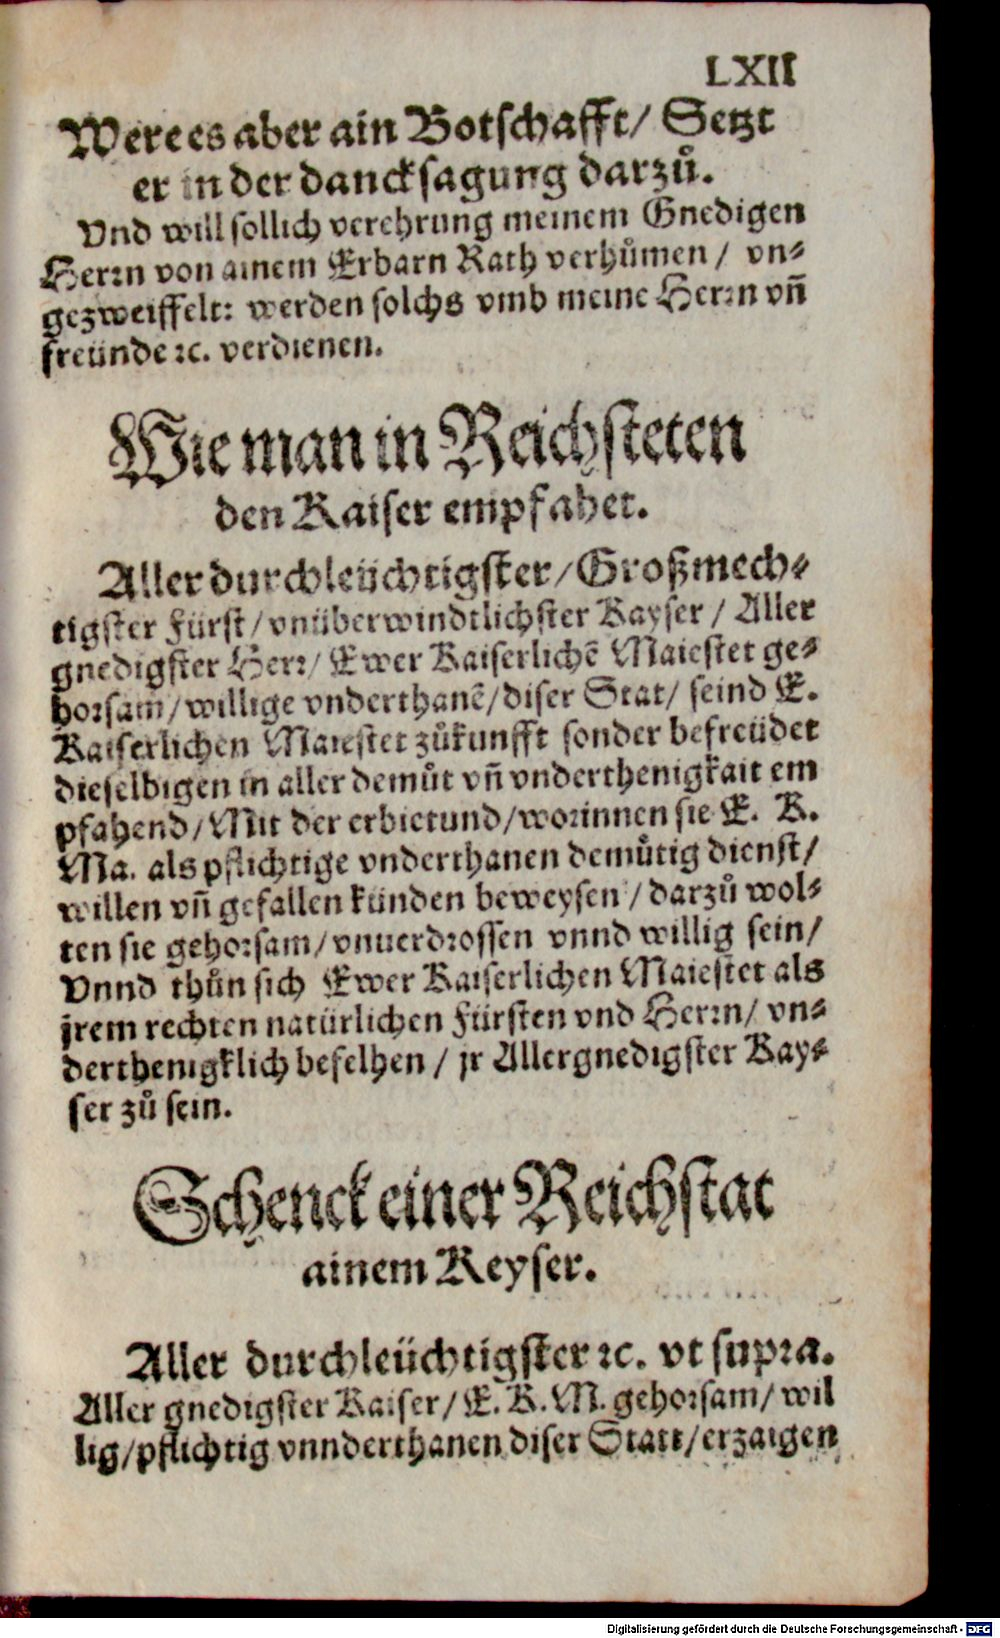 LXII
Were es aber ain Botschafft/ Setzt
er in der dancksagung darzů.
Vnd will sollich verehrung meinem Gnedigen
Herrn von ainem Erbarn Rath verhůmen / vn-
gezweiffelt: werden solchs vmb meine Herrn vñ
freünde ꝛc. verdienen.
Wie man in Reichsteten
den Kaiser empfahet.
Aller durchleüchtigster/Großmech-
tigster Fürst/vnüberwindtlichster Kayser / Aller
gnedigster Herr/ Ewer Kaiserlichē Maiestet ge-
horsam/willige vnderthanē/diser Stat/ seind E.
Kaiserlichen Maiestet zůkunfft sonder befreüdet
dieselbigen in aller demůt vñ vnderthenigkait em
pfahend/Mit der erbietund/worinnen sie E. K.
Ma. als pflichtige vnderthanen demůtig dienst/
willen vñ gefallen künden beweysen / darzů wol-
ten sie gehorsam/vnuerdrossen vnnd willig sein/
Vnnd thůn sich Ewer Kaiserlichen Maiestet als
jrem rechten natürlichen Fürsten vnd Herrn/ vn-
derthenigklich befelhen / jr Allergnedigster Kay-
ser zů sein.
Schenck einer Reichstat
ainem Keyser.
Aller durchleüchtigster ꝛc. vt supra.
Aller gnedigster Kaiser/ E. K. M. gehorsam/ wil
lig/pflichtig vnnderthanen diser Statt/erzaigen
Digitalisierung gefördert durch die Deutsche Forschungsgemeinschaft - DFG